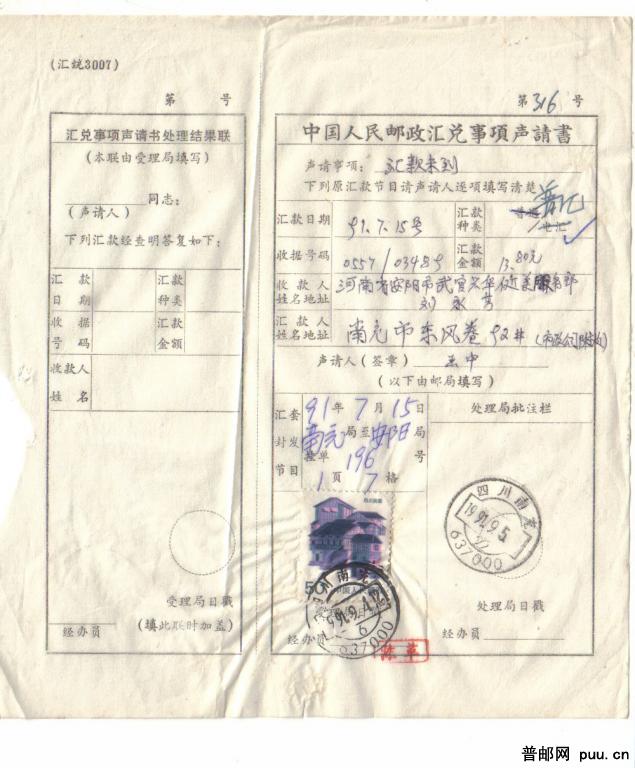 (汇统3007)
第 号
汇兑事项声请书处理结果联
(本联由受理局填写)
同志:
(声请人)
下列汇款经查明答复如下:
汇款日期 汇款种类
收据号码 汇款金额
收款人姓名
受理局日戳
经办员 (填此联时加盖)
第 316 号
中国人民邮政汇兑事項声請書
声请事项: 汇款未到
下列原汇款节目请声请人逐项填写清楚
汇款日期 91.7.15号 汇款种类 普通 电汇 普汇
收据号码 0557/0348号 汇款金额 13.80元
收款人姓名地址 河南省安阳市武官
刘
汇款人姓名地址 南充市东风巷92#
声请人(签章) 王中
(以下由邮局填写)
汇套封发节目 91年7月15日
南充局至安阳局
挂单 196 号
1 页 7 格
处理局批注栏
四川南充
1991.9.5
637000
50 中国人民邮政
四川民居
四川南充
637000
处理局日戳
经办员
陈革
普邮网 puu.cn